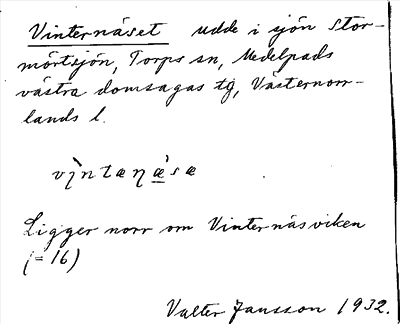 Vinternäset udde i sjön Stor-
mörtsjön, Torps sn, Medelpads
västra domsagas tg, Västernorr-
lands l.
vìntænæ̀sæ
Ligger norr om Vinternäsviken
(= 16)
Valter Jansson 1932.